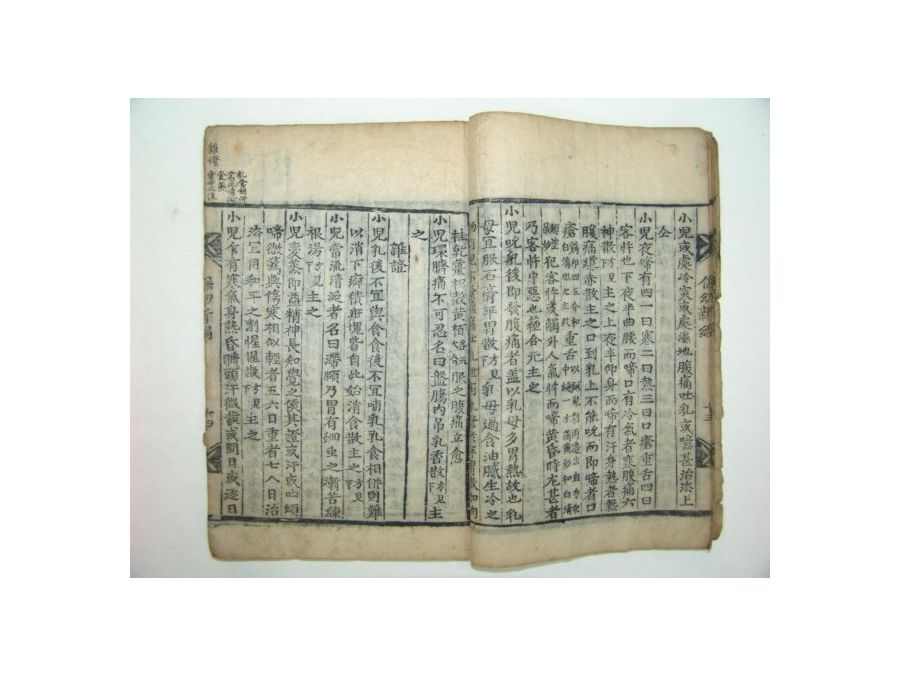 小兒或處冷寒或處濕地腹痛吐乳或啼甚治法上
仝
小兒夜啼有四一曰寒二曰熱三曰瘡重舌四曰
客忤也下夜半曲腰而啼口有冷氣者寒腹痛六
神散方見主之上夜半仰身而啼有汗身熱者熱
腹痛導赤散主之口到乳上不能吮而即啼者口
瘡重舌
犯客忤或觸外人氣忤而啼黃昏時尤甚者
乃客忤中惡也蘓合元主之
小兒吮乳後即發腹痛者盖以乳母多胃熱故也乳
母宜服石膏平胃散方見乳母過食油膩生冷之
服之腹痛立愈
小兒環臍痛不可忍名曰盤膓內吊乳香散方見下主
之
雜證
小兒乳後不宜與食食後不宜哺乳乳食相倂則難
以消下癖積疳塊皆自此始消食散主之方見
小兒常流清涎者名曰滯頤乃胃有細虫之漸苦練
根湯方見主之
小兒變蒸即益精神長知覺之候其證或汗或吐煩
啼燃萬與傷寒相似輕者五六日重者七八日治
法宜用和平之劑惺惺散方見主之
小兒食有寒氣身熱昏睡頭汗微喘或間日或逐日
雜證